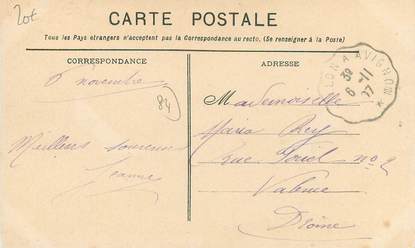 20€
CARTE POSTALE
Tous les Pays étrangers n'acceptent pas la Correspondance au recto. (Se renseigner à la Poste)
CORRESPONDANCE
6 novembre
84
Meilleurs souvenirs
Jeanne
ADRESSE
Mademoiselle
Maria Rey
Rue n° 2
Valence
Drôme
A AVIGNON
6 -11
07